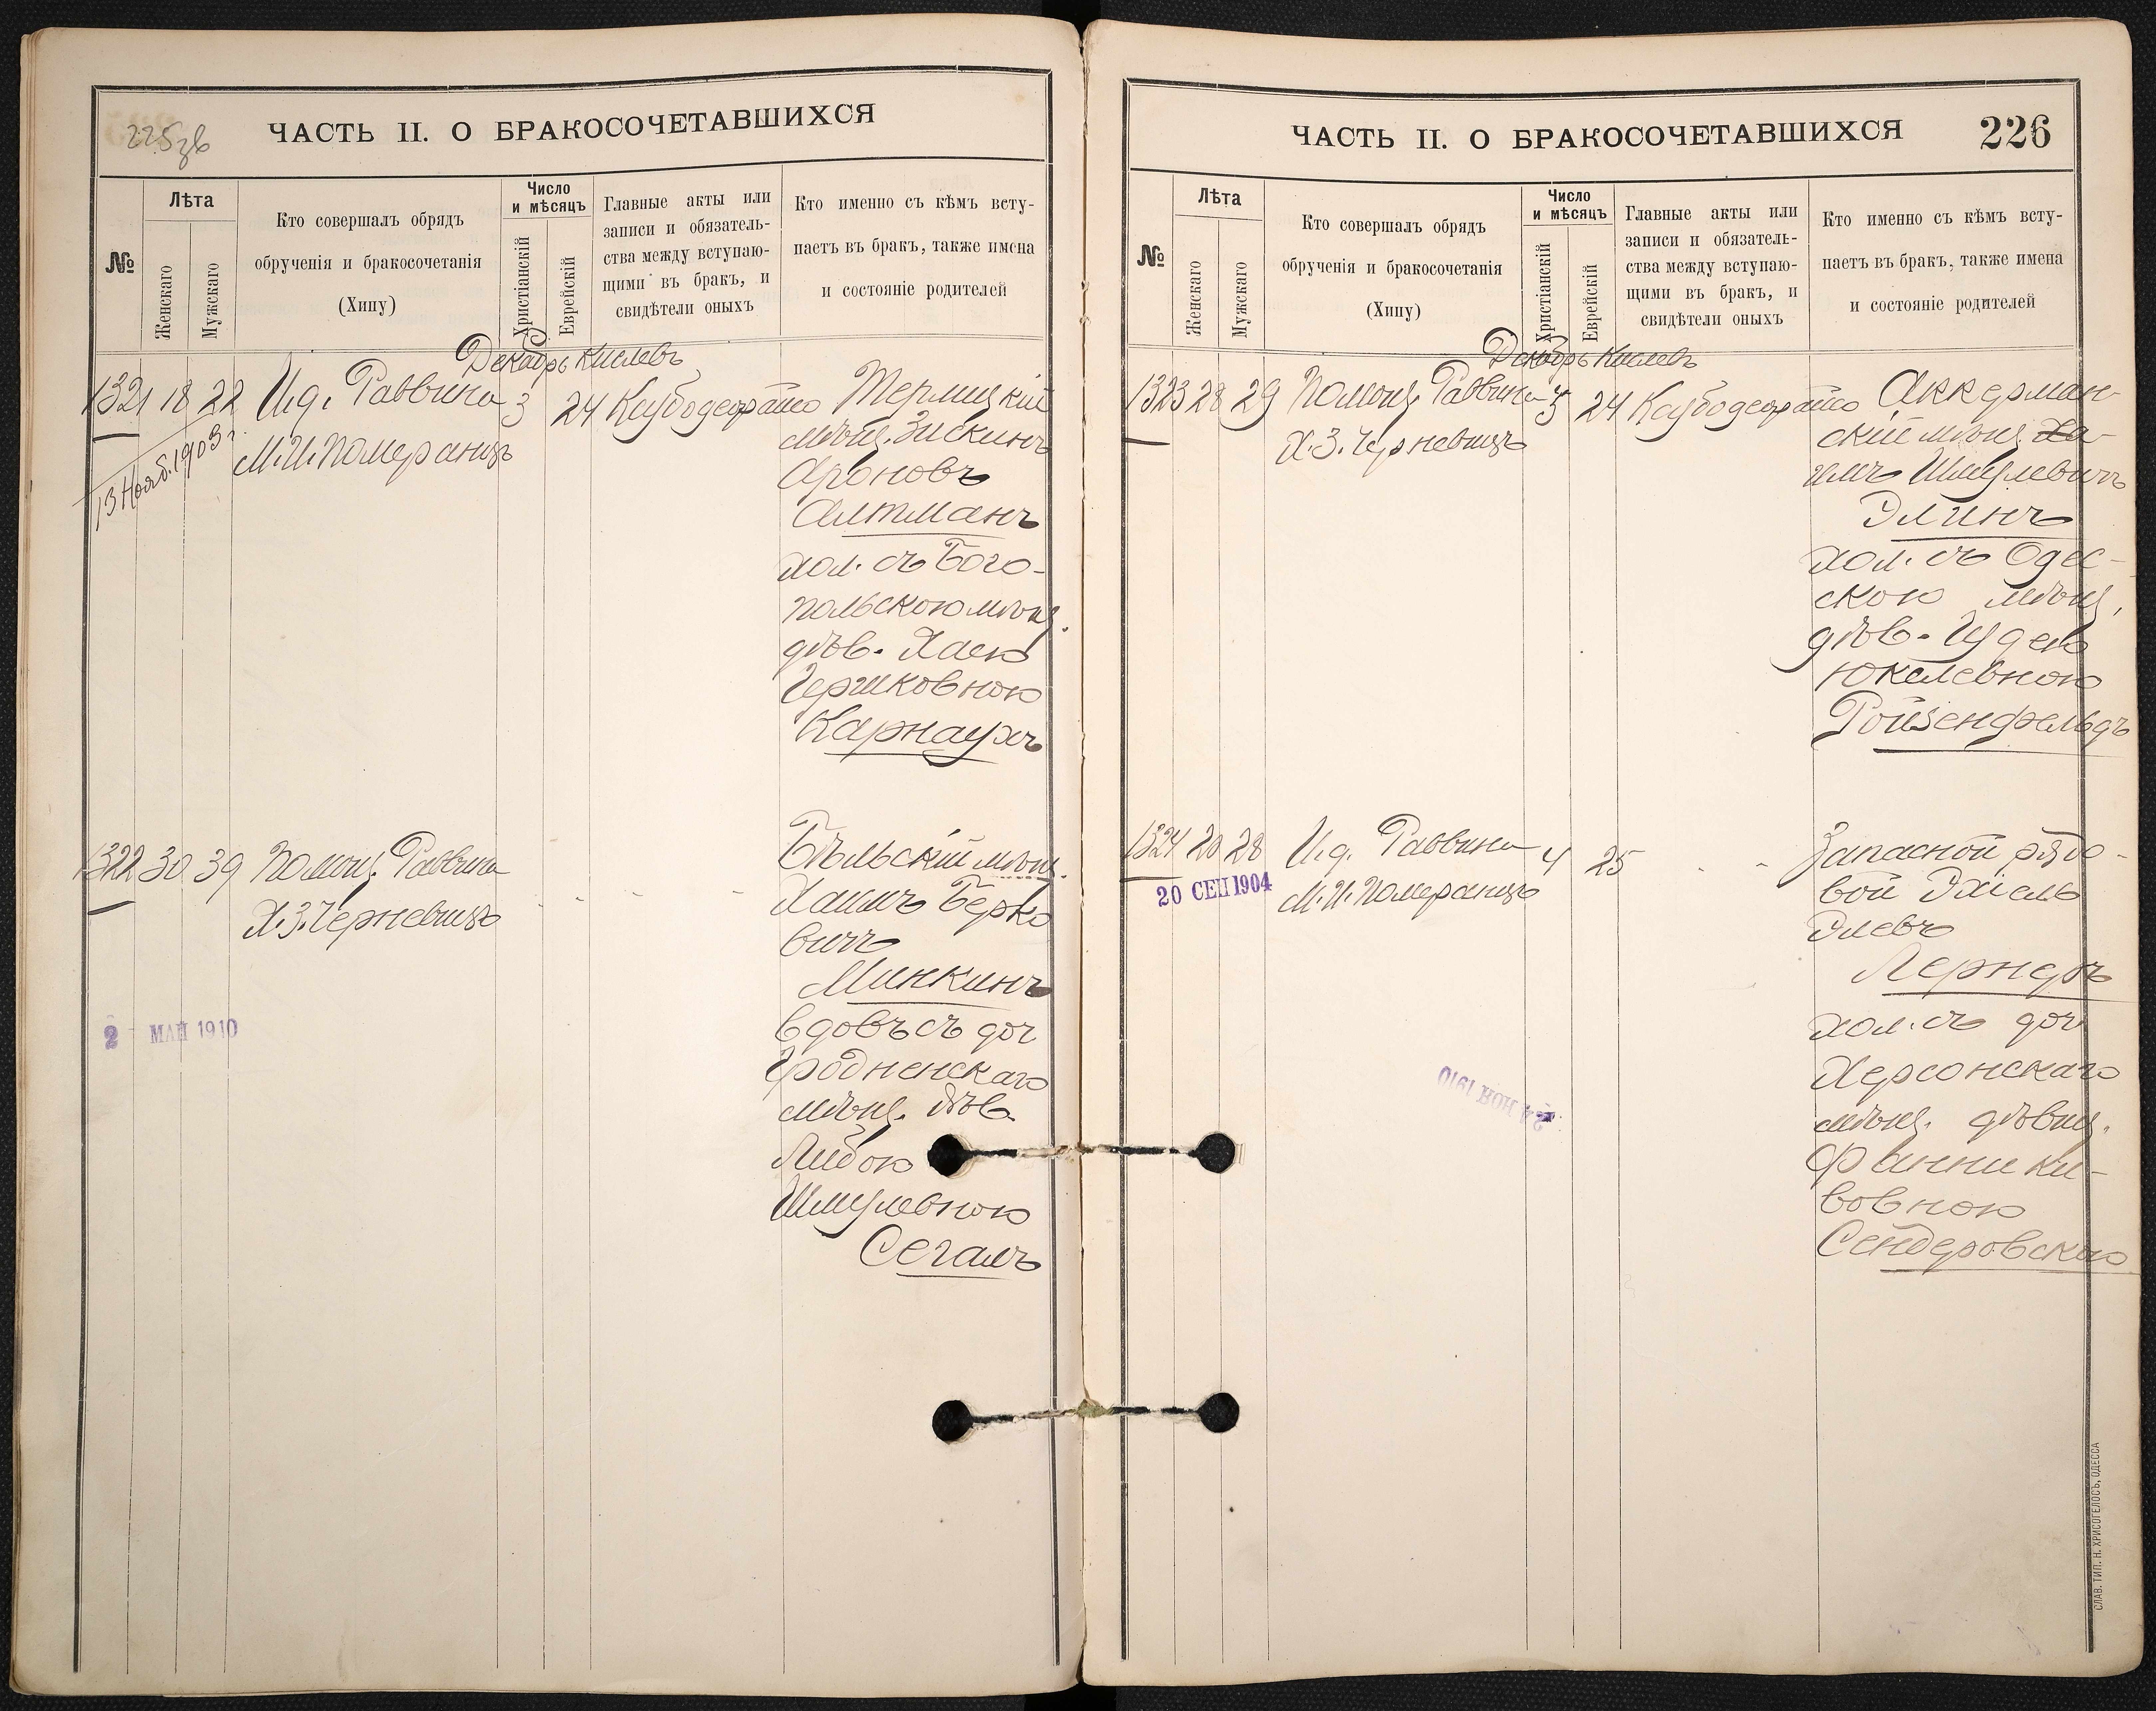 225зв
ЧАСТЬ II. О БРАКОСОЧЕТАВШИХСЯ
№
Лѣта
Женскаго
Мужскаго
Кто совершалъ обрядъ
обрученія и бракосочетанія
(Хипу)
Число
и мѣсяцъ
Христіанскій
Еврейскій
Главные акты или
записи и обязатель-
ства между вступаю-
щими въ бракъ, и
свидѣтели оныхъ
Кто именно съ кѣмъ всту-
паетъ въ бракъ, также имена
и состояніе родителей
Декабрь Кислевъ
1321 18 22 И.д. Раввина 3 24
М.И. Померанцъ
13 Нояб. 1903 г.
мѣщ. Зискинъ
Ароновъ
Алтманъ
хол. съ Бого-
польскою мѣщ.
дѣв. Хаею
Гершковною
Карнаухъ
1322 30 39 Помощ. Раввина - - -
Х.З. Черневицъ
Бѣльскій мѣщ.
Хаимъ Берко
вичъ
Минкинъ
вдовъ съ доч
Гродненскаго
мѣщ. дѣв
Либою
Шмулевною
Сегалъ
2 МАЙ 1910
ЧАСТЬ II. О БРАКОСОЧЕТАВШИХСЯ
226
№
Лѣта
Женскаго
Мужскаго
Кто совершалъ обрядъ
обрученія и бракосочетанія
(Хипу)
Число
и мѣсяцъ
Христіанскій
Еврейскій
Главные акты или
записи и обязатель-
ства между вступаю-
щими въ бракъ, и
свидѣтели оныхъ
Кто именно съ кѣмъ всту-
паетъ въ бракъ, также имена
и состояніе родителей
Декабрь Кислевъ
1323 28 29 Помощ. Раввина 3 24
Х.З. Черневицъ
Аккерман-
скій мѣщ. Ха-
имъ Шмулевичъ
Элинъ
хол. съ Одес-
скою мѣщ.
дѣв. Гудею
Юкелевною
Ройзенфельдъ
1324 20 28 И.д. Раввина 4 25 - -
М.И. Померанцъ
20 СЕН 1904
Запасной рядо-
вой Эхіель
Элевъ
Лернеръ
хол. съ доч
Херсонскаго
мѣщ. дѣвиц.
Фанни Ки-
вовною
Сендеровскою
24 НОЯ 1910
СЛАВ. ТИП. Н. ХРИСОГЕЛОСЪ, ОДЕССА